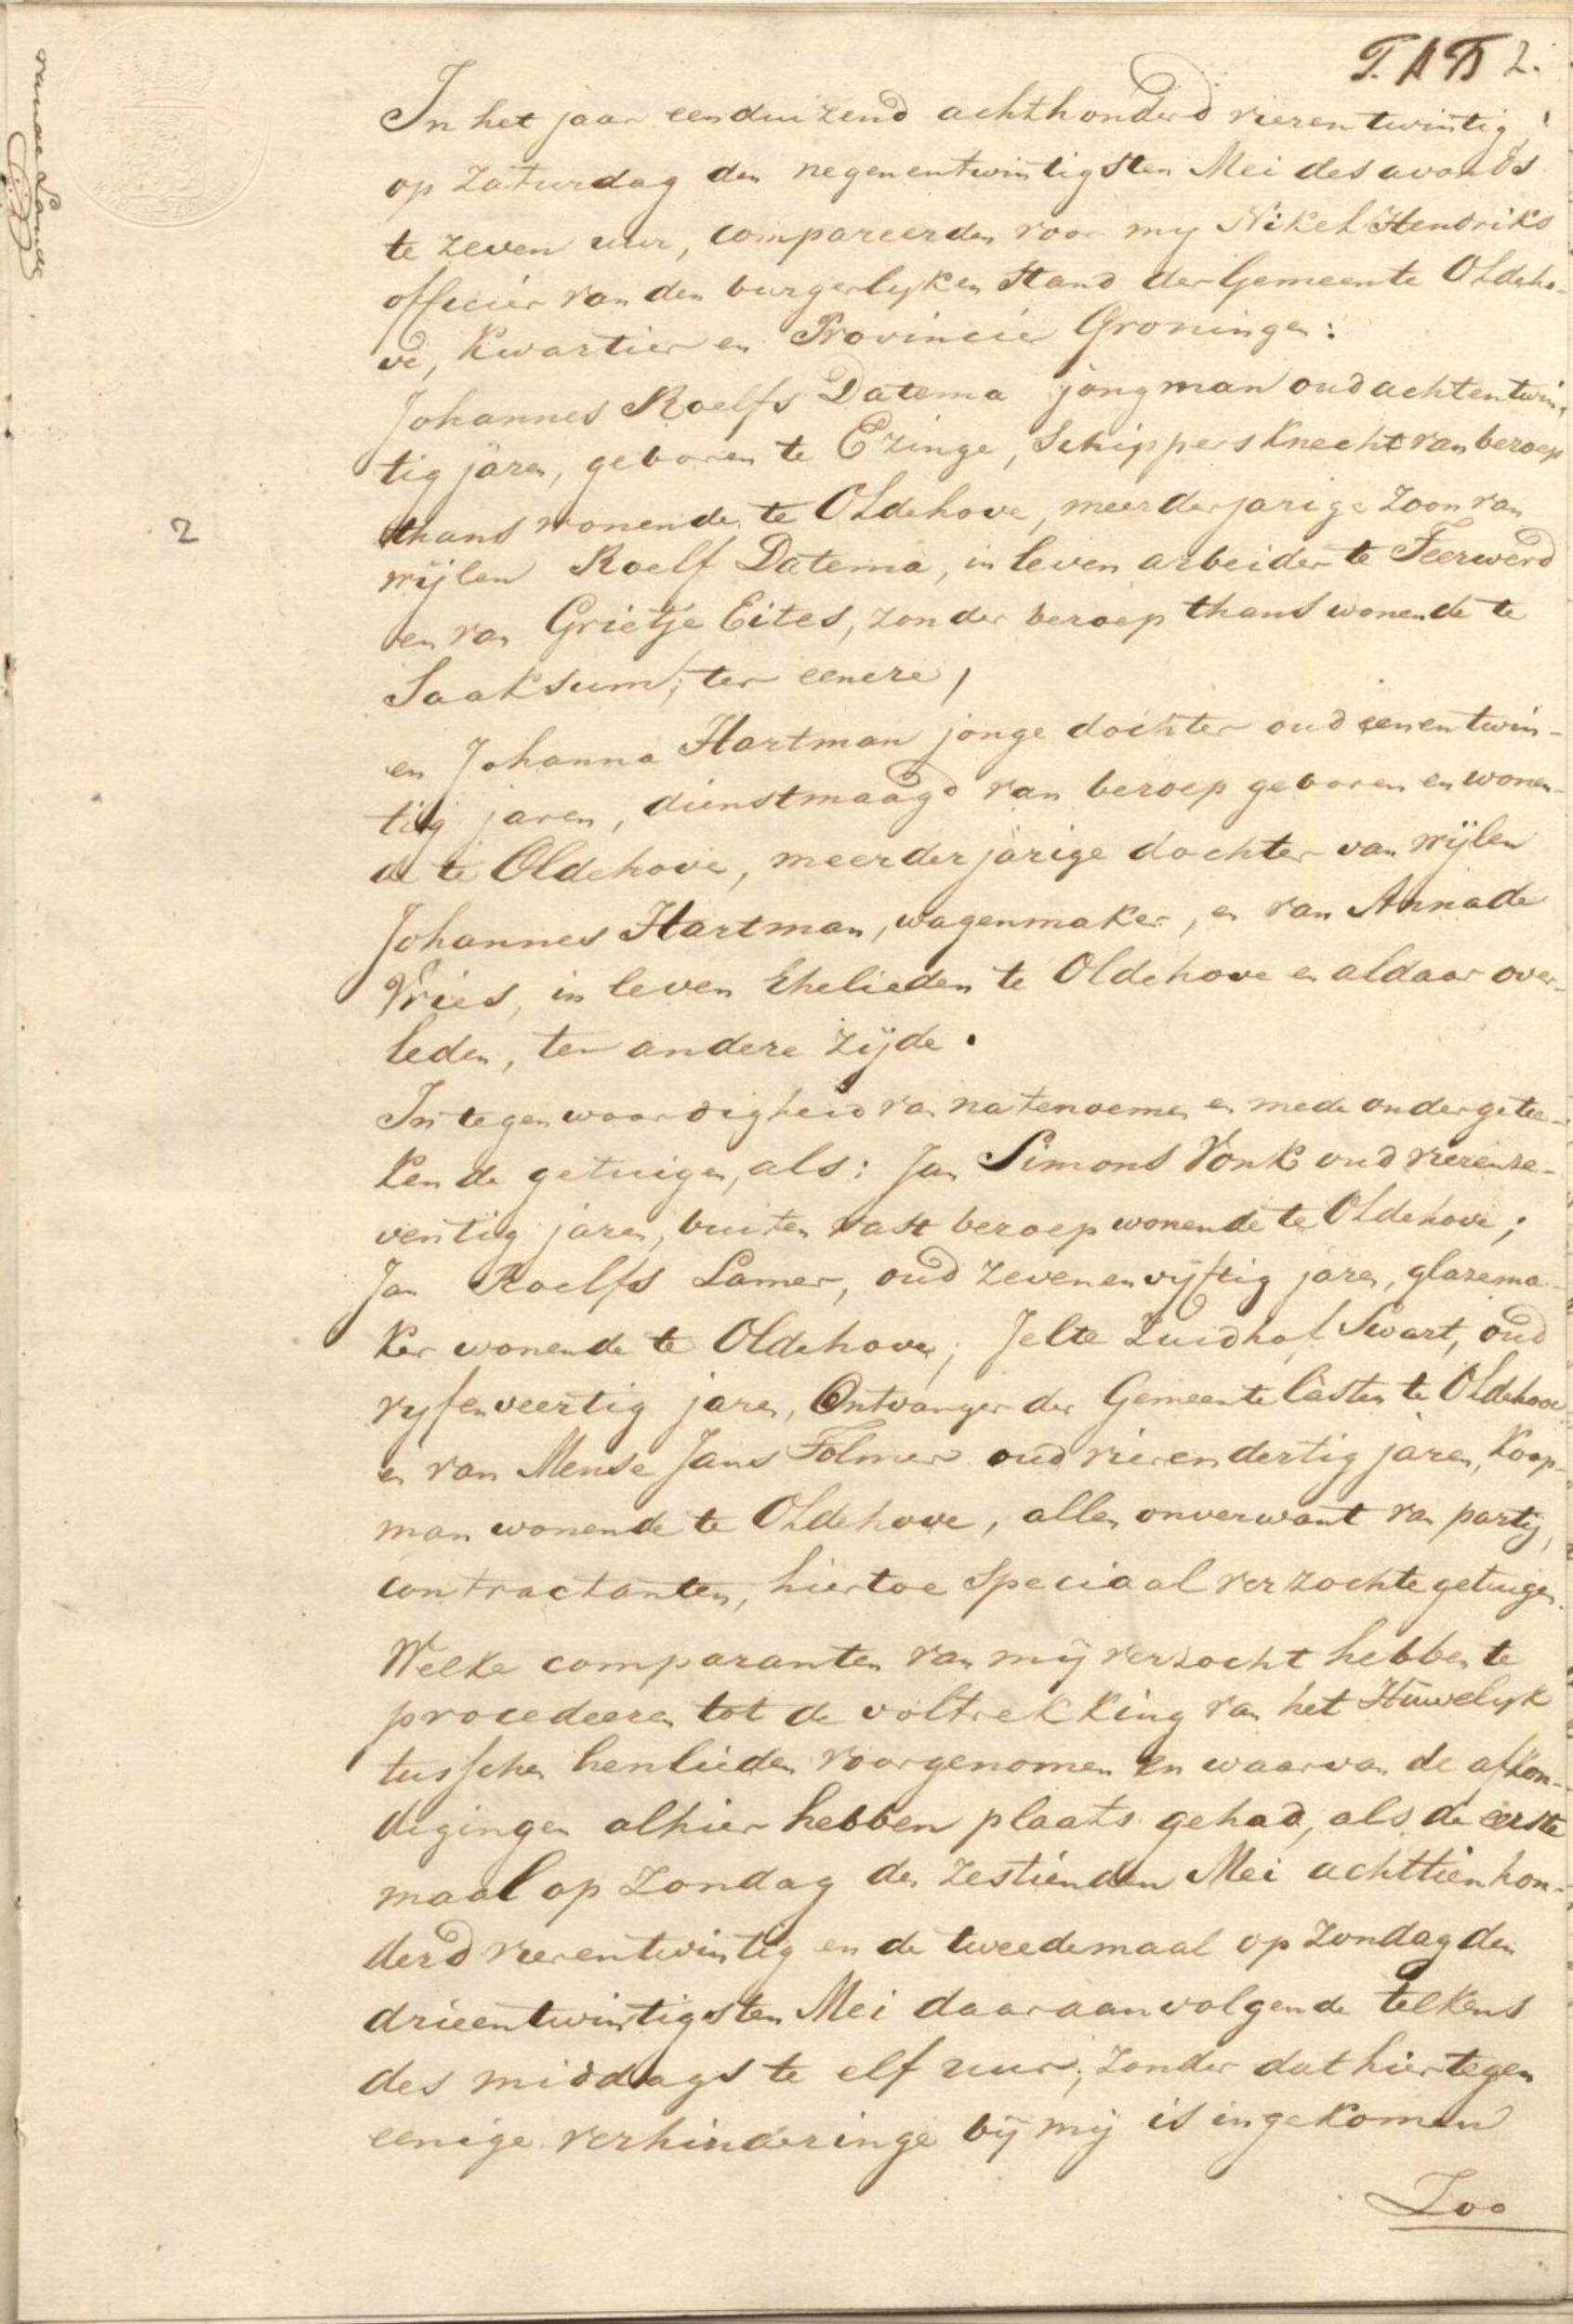 T. A B 2.
In het jaar eenduizend achthonderd vierentwintig,
op Zaturdag den negenentwintigsten Mei des avonds
te zeven uur, compareerden voor my Nikel Hendriks
officier van den burgerlyken Stand der Gemeente Oldeho-
ve, Kwartier en Provincie Groningen:
Johannes Roelfs Datema jongman oud achtentwin-
tig jaren, geboren te Ezinge, Schippersknecht van beroep
thans wonende te Oldehove, meerderjarige zoon van
2
wijlen Roelf Datema, in leven arbeider te Feerwerd
en van Grietje Eites, zonder beroep thans wonende te
Saaksum; ter eenere,
en Johanna Hartman jonge dochter oud eenentwin-
tig jaren, dienstmaagd van beroep geboren en wonen-
de te Oldehove, meerderjarige dochter van wijlen
Johannes Hartman, wagenmaker, en van Anna de
Vries, in leven Ehelieden te Oldehove en aldaar over-
leden, ter andere zijde.
In tegenwoordigheid van natenoemen en mede ondergetee-
kende getuigen, als: Jan Simons Vonk oud vierenze-
ventig jaren, buiten vast beroep wonende te Oldehove;
Jan Roelfs Lamer, oud zevenenvijftig jaren, glazema-
ker wonende te Oldehove; Jelte Zuidhof Swart, oud
vyfenveertig jaren, Ontvanger der Gemeente lasten te Oldehove
en van Mense Jans Folmer oud vierendertig jaren, Koop-
man wonende te Oldehove, allen onverwant van partij,
contractanten, hiertoe speciaal verzochte getuigen.
Welke comparanten van mij verzocht hebben te
procedeeren tot de voltrekking van het Huwelyk
tusschen henlieden voorgenomen en waarvan de afkon-
digingen alhier hebben plaats gehad, als de eerste
maal op Zondag den zestienden Mei achttienhon-
derd vierentwintig en de tweedemaal op Zondag den
drieentwintigsten Mei daaraanvolgende telkens
des middags te elf uur; zonder dat hiertegen
eenige verhinderinge bij mij is ingekomen
Zoo